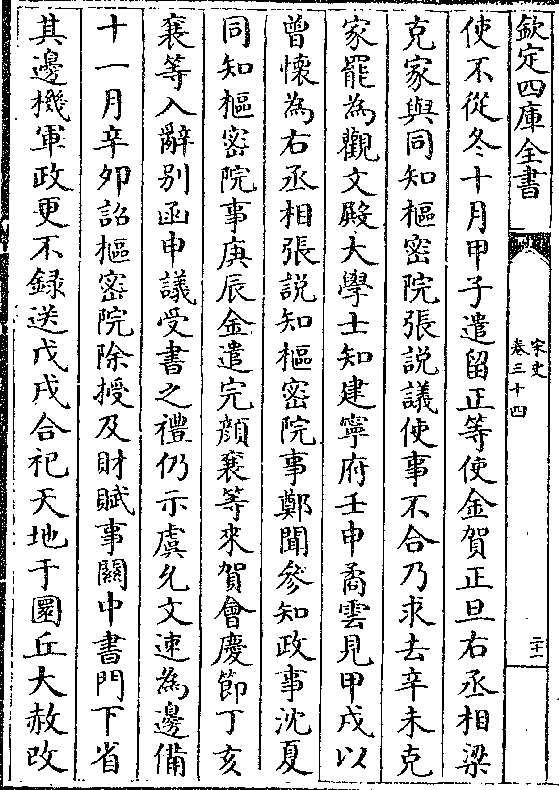 欽定四庫全書
宋史
卷三十四
二十一
使不從冬十月甲子遣留正等使金賀正旦右丞相梁
克家與同知樞密院張説議使事不合乃求去辛未克
家罷為觀文殿大學士知建寧府壬申矞雲見甲戌以
曾懐為右丞相張説知樞密院事鄭聞參知政事沈夏
同知樞密院事庚辰金遣完顔襄等來賀會慶節丁亥
襄等入辭别函申議受書之禮仍示虞允文速為邊備
十一月辛夘詔樞密院除授及財賦事關中書門下省
其邊機軍政更不録送戊戌合祀天地于圜丘大赦改